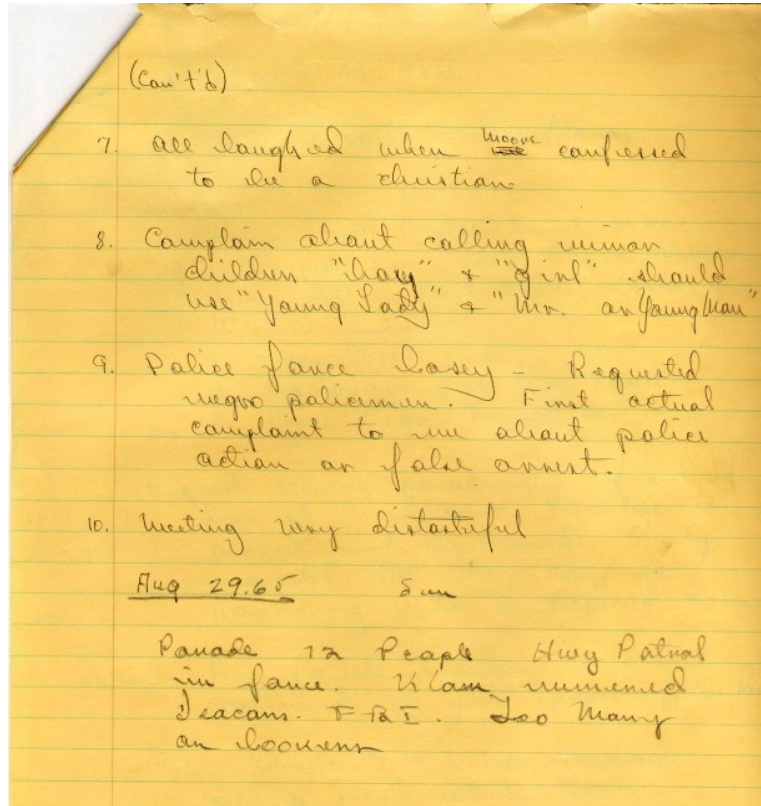 (Con't'd)
7. All laughed when Moore confessed
to be a christian
8. Complain about calling
children "boy" & "girl" should
use "Young Lady" & "Mr. or Young Man"
9. Police force lousy - Requested
negro policemen. First actual
complaint to me about police
action or false arrest.
10. Meeting very distasteful
Aug 29.65 Sun
Parade 12 People Hwy Patrol
in force. Klan rumored
Deacons. FBI. Too Many
on lookers